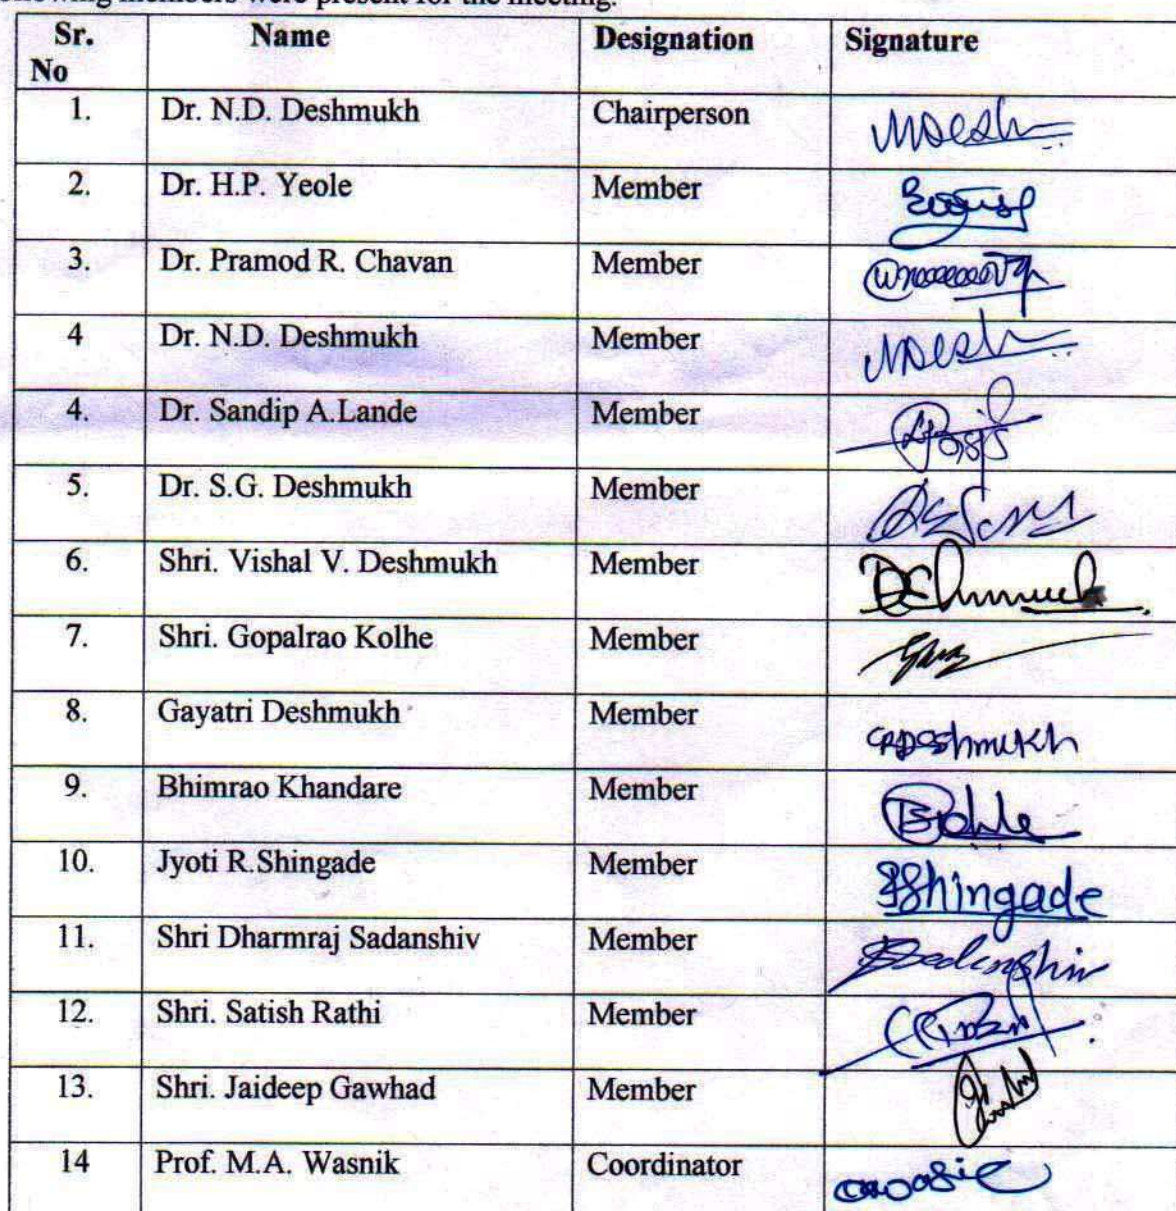 following members were present for the meeting.
Sr. No Name Designation Signature
1. Dr. N.D. Deshmukh Chairperson
2. Dr. H.P. Yeole Member
3. Dr. Pramod R. Chavan Member
4 Dr. N.D. Deshmukh Member
4. Dr. Sandip A.Lande Member
5. Dr. S.G. Deshmukh Member
6. Shri. Vishal V. Deshmukh Member Deshmukh
7. Shri. Gopalrao Kolhe Member
8. Gayatri Deshmukh Member GRDeshmukh
9. Bhimrao Khandare Member
10. Jyoti R.Shingade Member JShingade
11. Shri Dharmraj Sadanshiv Member Sadanshiv
12. Shri. Satish Rathi Member
13. Shri. Jaideep Gawhad Member
14 Prof. M.A. Wasnik Coordinator